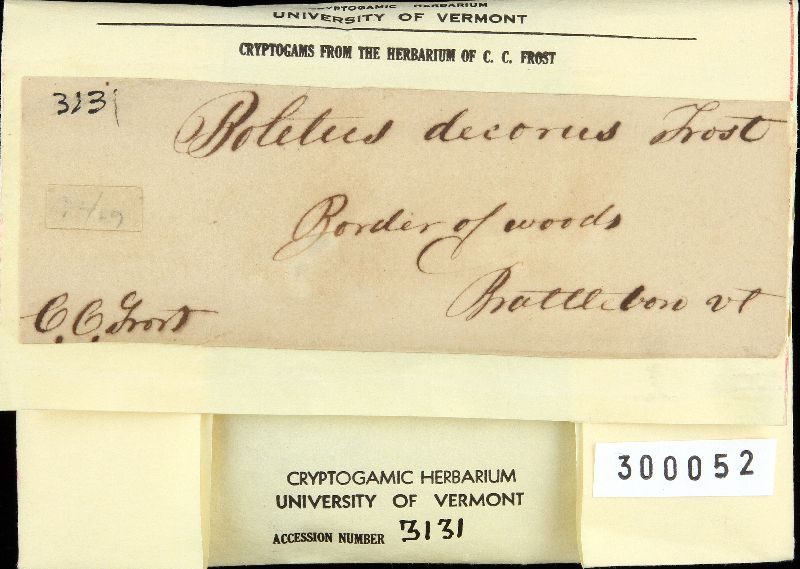 CRYPTOGAMIC HERBARIUM
UNIVERSITY OF VERMONT
CRYPTOGAMS FROM THE HERBARIUM OF C. C. FROST
3131
Boletus decorus Frost
Border of woods
Brattleboro vt
C. C. Frost
CRYPTOGAMIC HERBARIUM
UNIVERSITY OF VERMONT
ACCESSION NUMBER 3131
300052